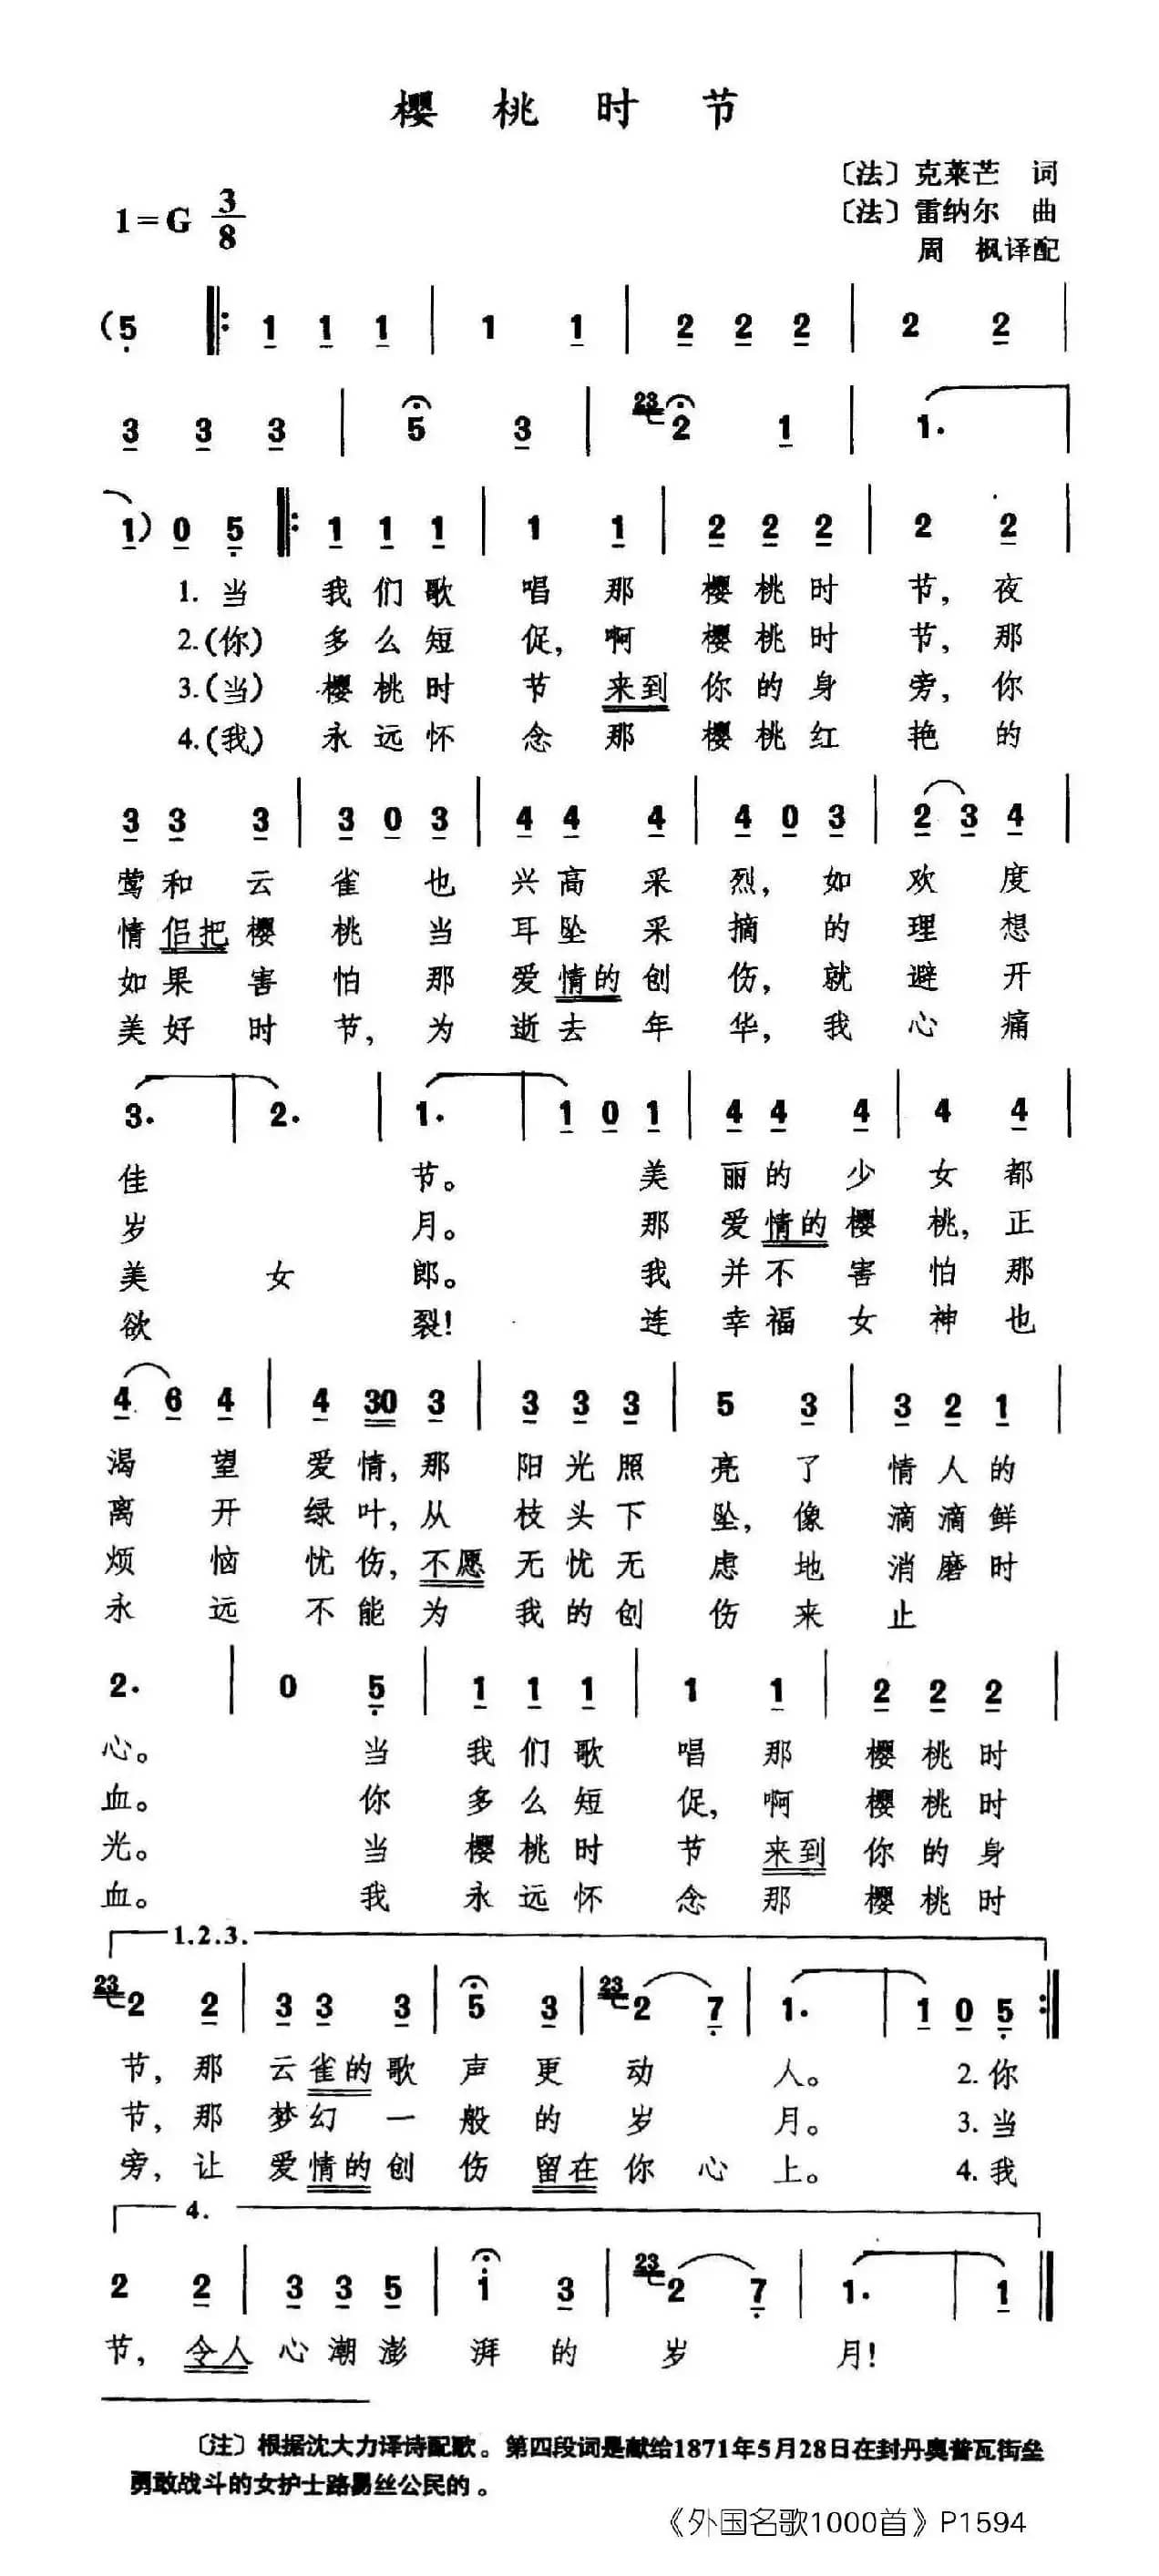 樱桃时节
〔法〕克莱芒 词
1=G 3/8
〔法〕雷纳尔 曲
周 枫译配
(5 ‖: 1 1 1 | 1 1 | 2 2 2 | 2 2 |
3 3 3 | 5 3 | 23 2 1 | 1. |
1) 0 5 ‖: 1 1 1 | 1 1 | 2 2 2 | 2 2 |
1. 当 我们歌 唱 那 樱桃时 节, 夜
2.(你) 多么短 促, 啊 樱桃时 节, 那
3.(当) 樱桃时 节 来到 你的身 旁, 你
4.(我) 永远怀 念 那 樱桃红 艳 的
3 3 3 | 3 0 3 | 4 4 4 | 4 0 3 | 2 3 4 |
莺和云 雀 也 兴高采 烈, 如 欢 度
情侣把樱 桃 当 耳坠采 摘 的 理 想
如果害 怕 那 爱情的创 伤, 就 避 开
美好时 节, 为 逝去年 华, 我 心 痛
3. | 2. | 1. | 1 0 1 | 4 4 4 | 4 4 |
佳 节。 美 丽的少 女 都
岁 月。 那 爱情的樱 桃, 正
美 女 郎。 我 并不害 怕 那
欲 裂! 连 幸福女 神 也
4 6 4 | 4 30 3 | 3 3 3 | 5 3 | 3 2 1 |
渴 望 爱情, 那 阳光照 亮 了 情人的
离 开 绿叶, 从 枝头下 坠, 像 滴滴鲜
烦 恼 忧伤, 不愿 无忧无 虑 地 消磨时
永 远 不能为 我的创 伤 来 止
2. | 0 5 | 1 1 1 | 1 1 | 2 2 2 |
心。 当 我们歌 唱 那 樱桃时
血。 你 多么短 促, 啊 樱桃时
光。 当 樱桃时 节 来到 你的身
血。 我 永远怀 念 那 樱桃时
1.2.3.
23 2 2 | 3 3 3 | 5 3 | 23 2 7 | 1. | 1 0 5 :‖
节, 那 云雀的歌 声 更 动 人。 2.你
节, 那 梦幻一 般 的 岁 月。 3.当
旁, 让 爱情的创 伤 留在 你 心 上。 4.我
4.
2 2 | 3 3 5 | 1 3 | 23 2 7 | 1. | 1 ‖
节, 令人 心潮澎 湃 的 岁 月!
〔注〕根据沈大力译诗配歌。第四段词是献给1871年5月28日在封丹奥普瓦街垒
勇敢战斗的女护士路易丝公民的。
《外国名歌1000首》P1594